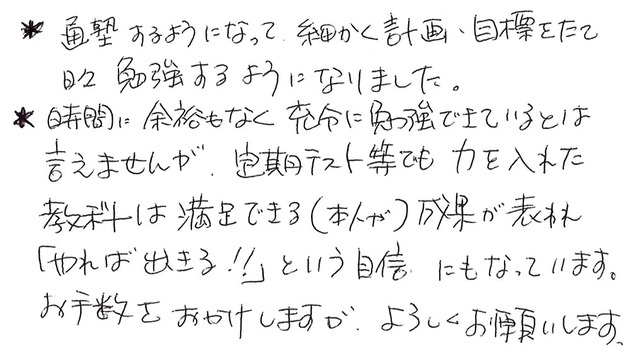 ★ 通塾するようになって、細かく計画、目標をたて
日々勉強するようになりました。
★ 時間に余裕もなく充分に勉強できているとは
言えませんが、定期テスト等でも力を入れた
教科は満足できる(本人が)成果が表れ
「やれば出きる!!」という自信にもなっています。
お手数をおかけしますが、よろしくお願いします。